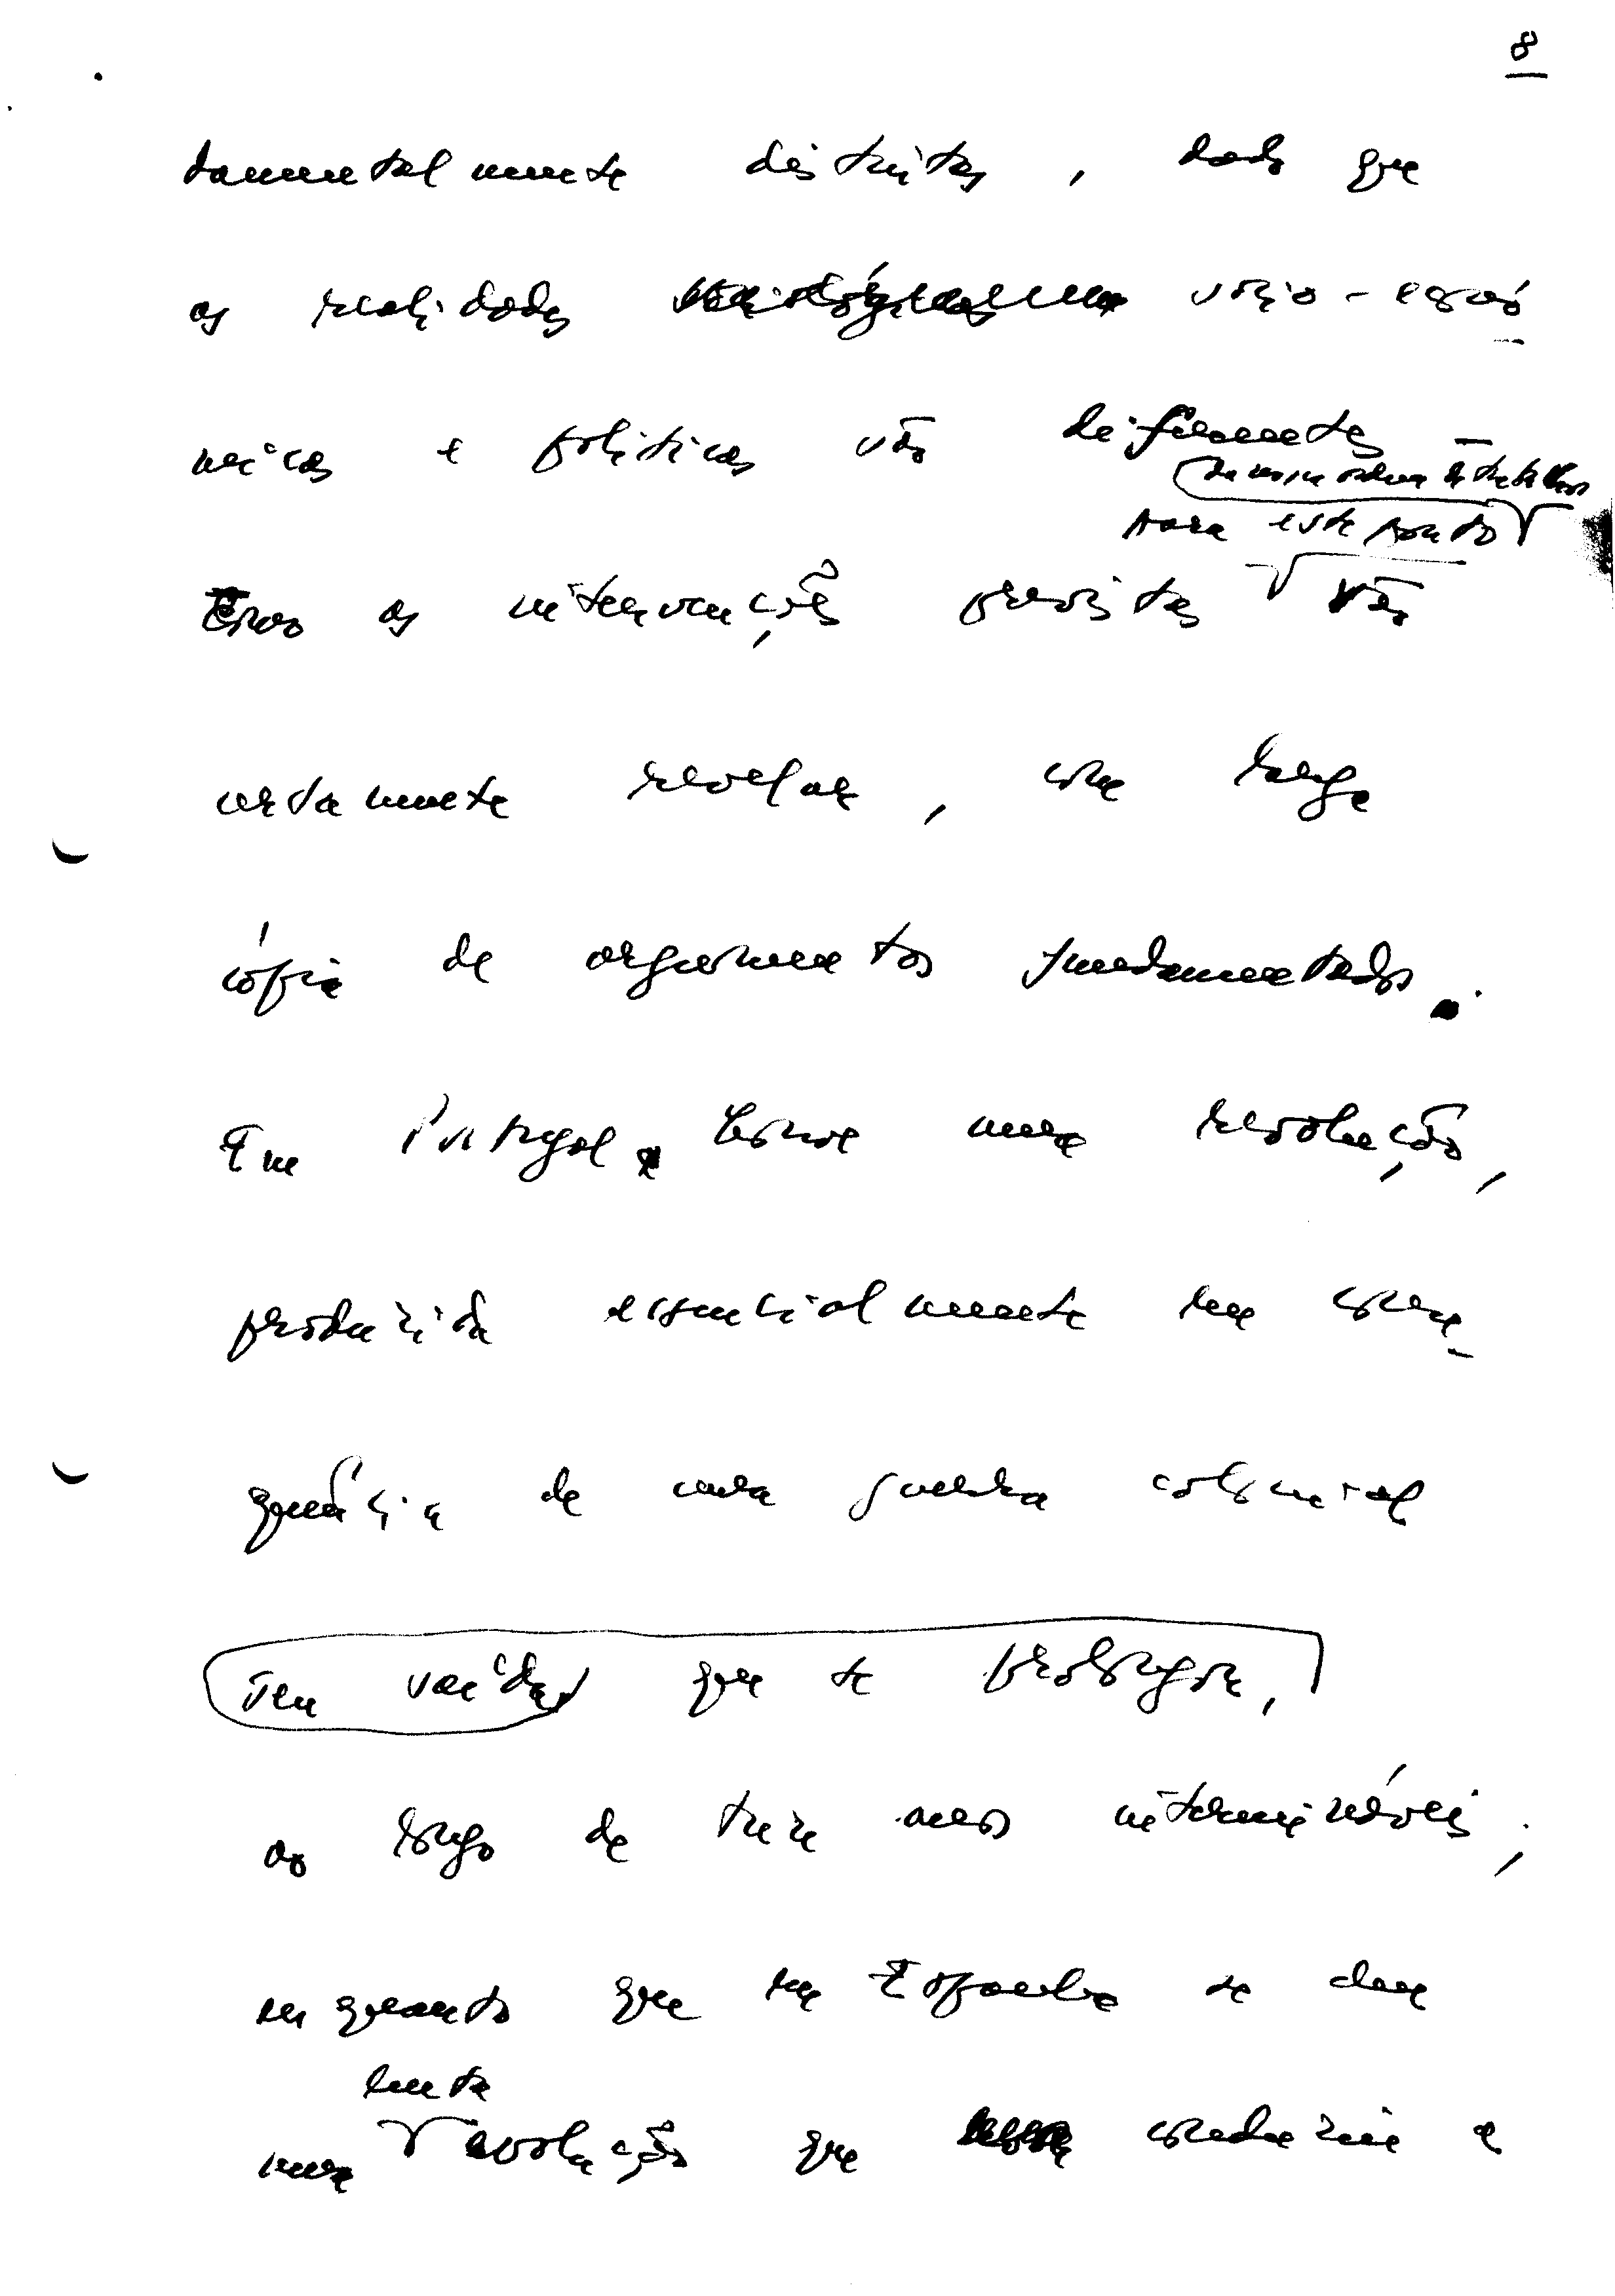 8
damentalmente distintas, dado que
as realidades socio-econó
micas e políticas são diferentes -
para este ponto
como as intervenções previstas vão
certamente revelar, com larga
cópia de argumentos fundamentados.
Em Portugal houve uma revolução,
produzida essencialmente em conse-
quência de uma guerra colonial
sem saída que se prolongou,
ao longo de treze anos intermináveis,
enquanto que em Espanha se deu
lenta
uma evolução que conduziu a